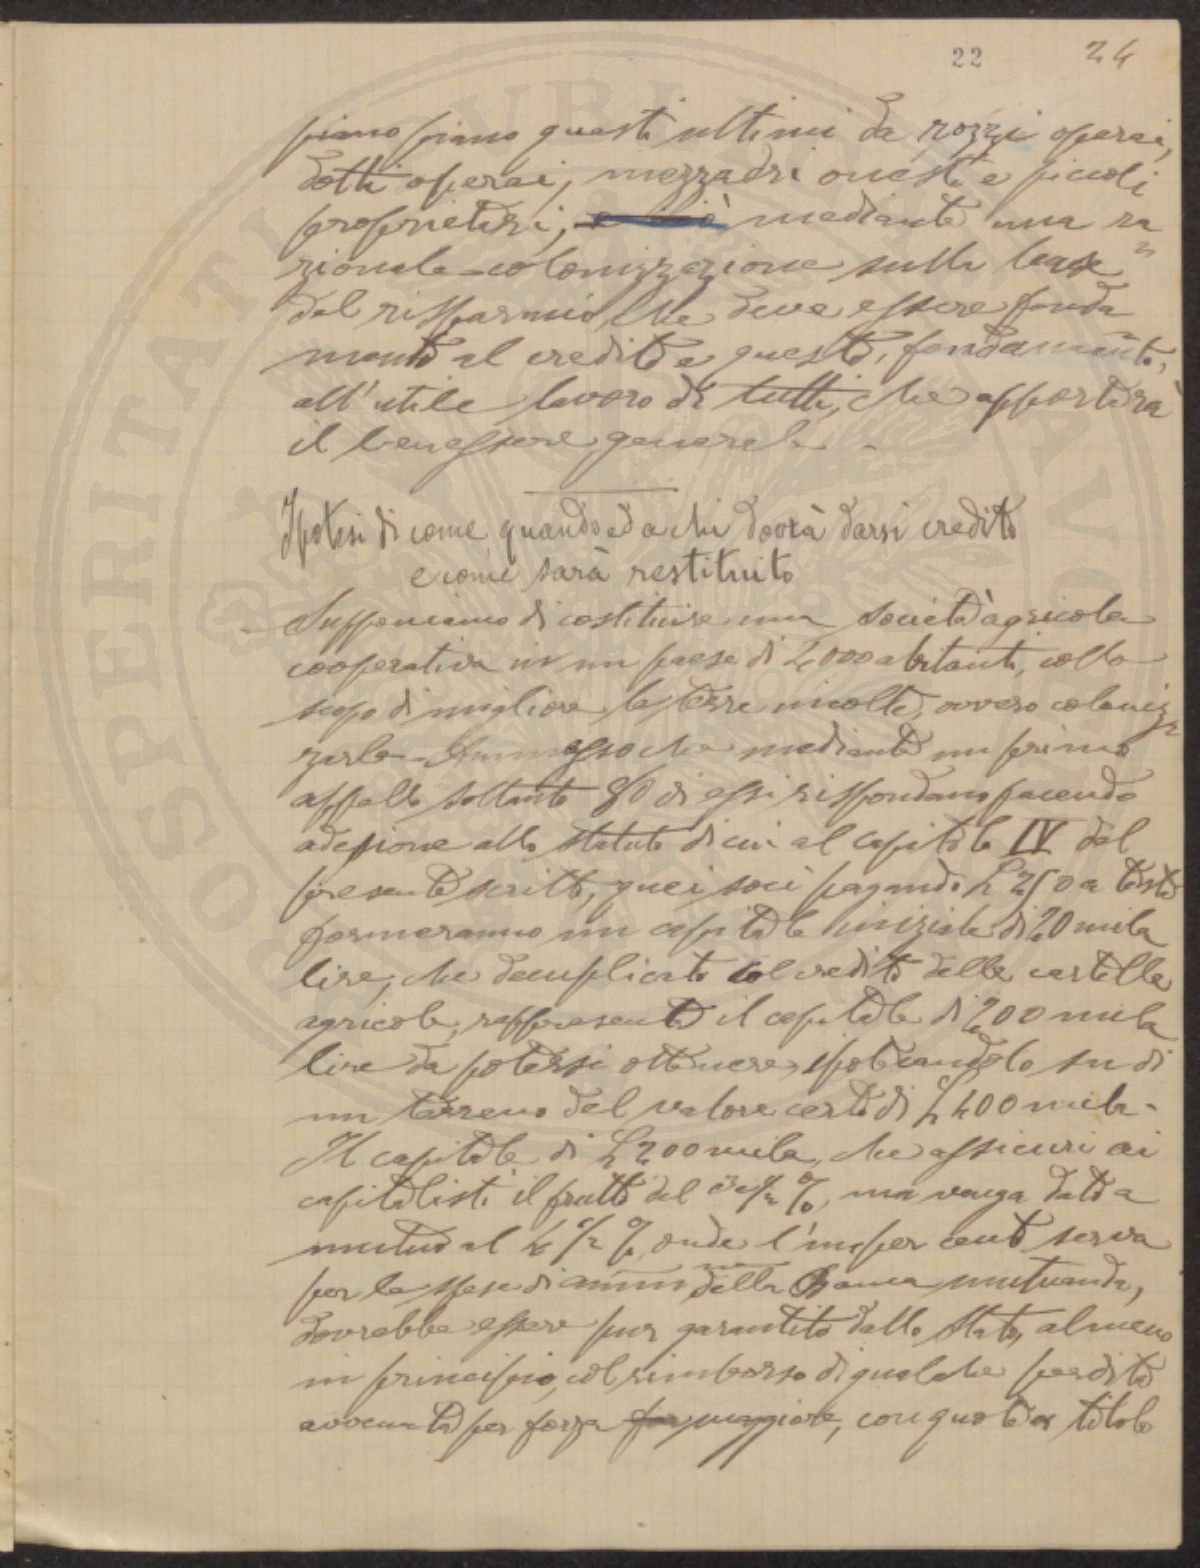 22 24
piano piano questi ultimi da rozzi operai,
dotti operai, mezzadri onesti e piccoli
proprietari, mediante una ra
zionale colonizzazione sulla base
del risparmio che deve essere fonda
mento al credito e questo, fondamento,
all'utile lavoro di tutti, che apporterà
il benessere generale.
Ipotesi di come, quando ed a chi dovrà darsi credito
e come sarà restituito
Supponiamo di costituire una società agricola
cooperativa in un paese di 2000 abitanti, collo
scopo di migliorare le terre incolte, ovvero coloniz
zarle. Ammesso che mediante un primo
appello soltanto 80 di essi rispondano facendo
adesione allo statuto di cui al capitolo IV del
presente scritto, quei soci pagando L 250 a testa
formeranno un capitale iniziale di 20 mila
lire, che decuplicato col credito delle cartelle
agricole, rappresenta il capitale di 200 mila
lire da potersi ottenere ipotecandolo su di
un terreno del valore certo di L 400 mila.
Il capitale di L 200 mila, che assicuri ai
capitalisti il frutto del 3 1/2 %, ma venga dato a
mutuo al 4 1/2 %, onde l'uno per cento serva
per le spese di ammne della Banca mutuanda,
dovrebbe essere pur garantito dallo Stato, almeno
in principio, col rimborso di qualche perdita
avvenuta per forza maggiore, con quota a titolo